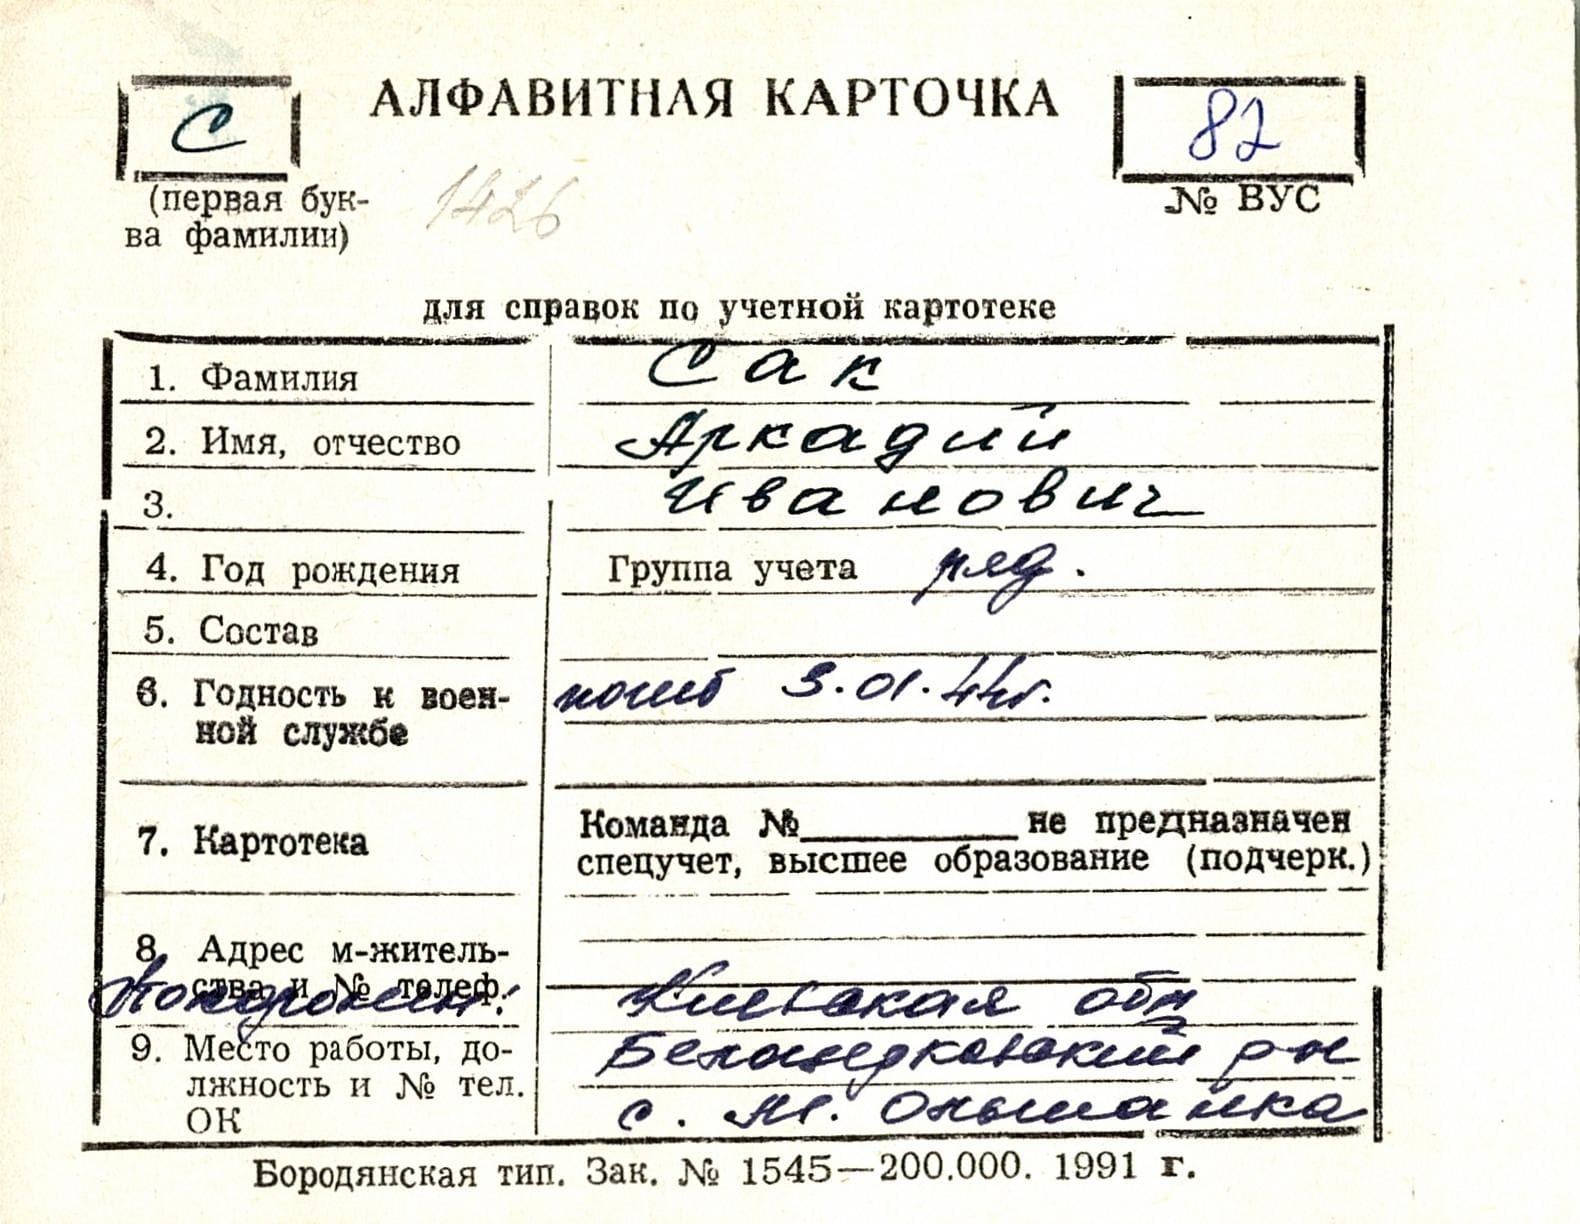 С
АЛФАВИТНАЯ КАРТОЧКА
82
(первая бук-
ва фамилии)
1426
№ ВУС
для справок по учетной картотеке
1. Фамилия Сак
2. Имя, отчество Аркадий
3. Иванович
4. Год рождения Группа учета ряд.
5. Состав
6. Годность к воен- погиб 3.01.44г.
ной службе
7. Картотека
Команда № не предназначен
спецучет, высшее образование (подчерк.)
8. Адрес м-житель-
ства и № телеф.
Похоронен: Киевская обл
9. Место работы, до- Белоцерковский р-н
лжность и № тел. с. М. Ольшанка
ОК
Бородянская тип. Зак. № 1545—200.000. 1991 г.